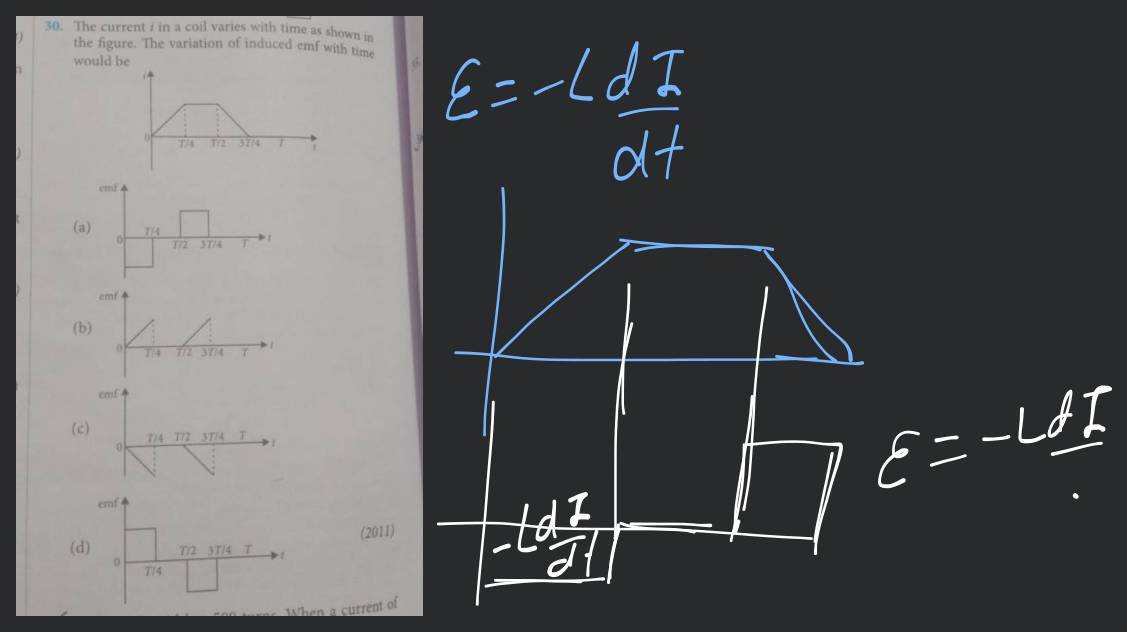 30. The current i in a coil varies with time as shown in
the figure. The variation of induced emf with time
would be
i
0
T/4 T/2 3T/4 T
t
(a)
emf
0
T/4
T/2 3T/4 T t
(b)
emf
0
T/4 T/2 3T/4 T t
(c)
emf
0
T/4 T/2 3T/4 T t
(d)
emf
0
T/4
T/2 3T/4 T t
(2011)
turns. When a current of
ℰ = -L dI
dt
-L dI
dt
ℰ = -L dI